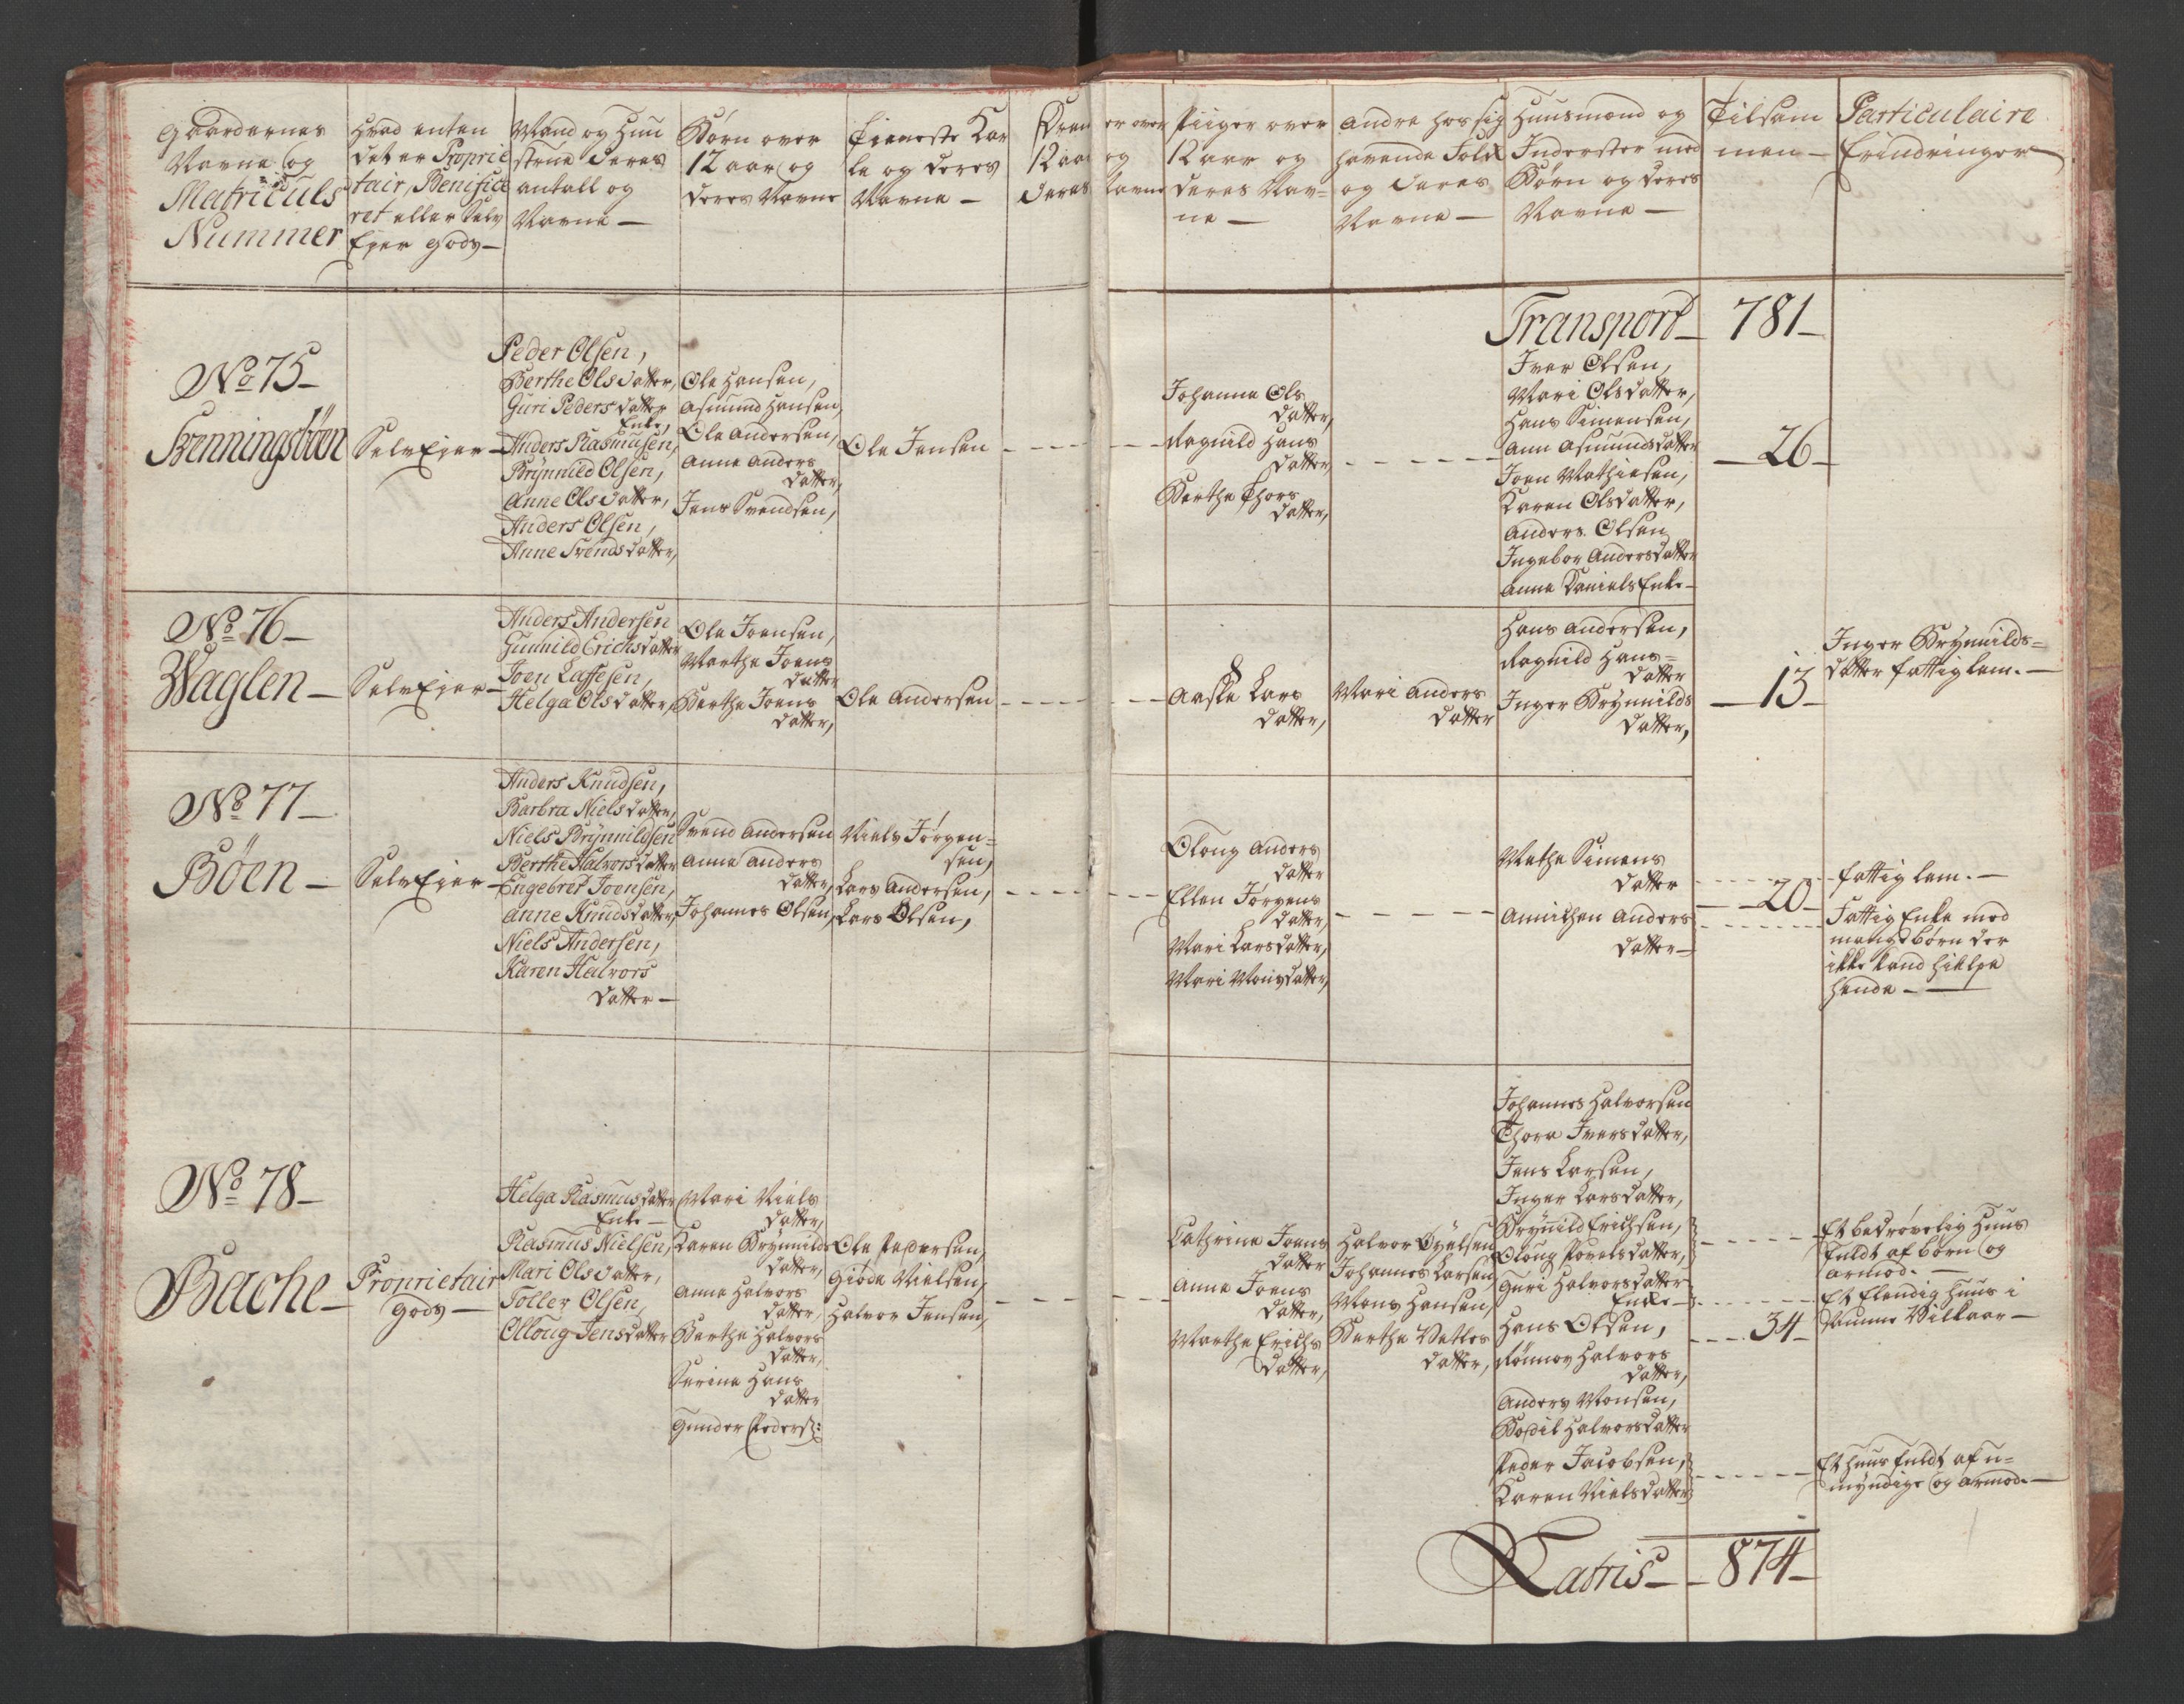 Gaardernes
Navne og
Matriculs
Nummer
Hvad enten
det er Proprie
tair, Benifice
ret eller Selv
Ejer Gods —
Mand og Huu
strue deres
antall og
Navne —
Børn over
12 aar og
deres Navne
Tieneste Kar
le og deres
Navne —
Dren
12 aa
deres
er over
og
Navne
Piiger over
12 aar og
deres Nav=
ne —
Andre hos sig
havende Folk
og deres
Navne —
Huusmænd og
Inderster med
Børn og deres
Navne —
Tilsam
men —
Particulaire
Erindringer
Transport — 781 —
No 75 —
Svenningsböen
SelvEjer —
Peder Olsen,
Berthe Olsdatter,
Guri Pedersdatter
Enke,
Anders Rasmusen,
Brÿnnild Olsen,
Anne Olsdatter,
Anders Olsen,
Anne Svendsdatter,
Ole Hansen,
Asmund Hansen,
Ole Andersen,
Anne Anders
datter,
Jens Svendsen,
Ole Jensen
Johanna Ols
datter,
Ragnild Hans
datter,
Berthe Thors
datter,
Iver Olsen,
Mari Olsdatter,
Hans Simensen,
Ann Asmundsdatter
Joen Mathiesen,
Karen Olsdatter,
Anders Olsen
Ingebor Andersdatter
Anne Daniels Enke —
— 26 —
No 76 —
Waglen —
SelvEjer —
Anders Andersen
Gunnild Erichsdatter
Joen Lassesen,
Helga Olsdatter,
Ole Joensen,
Marthe Joens
datter
Berthe Joens
datter,
Ole Andersen
Aaste Lars
datter,
Mari Anders
datter
Hans Andersen,
Ragnild Hans=
datter
Inger Brÿnnilds
datter,
— 13 —
Inger Brÿnnilds=
datter fattig lem. —
No 77 —
Böen —
SelvEjer —
Anders Knudsen,
Barbra Nielsdatter,
Niels Brÿnnildsen
Berthe Halvorsdatter
Engebret Joensen,
Anne Knudsdatter,
Niels Andersen,
Karen Halvors
datter —
Svend Andersen
Anne Anders
datter,
Johannes Olsen,
Niels Jørgen=
sen,
Lars Andersen,
Lars Olsen,
Oloug Anders
datter
Ellen Jørgens
datter,
Mari Larsdatter,
Mari Monsdatter,
Mathe Simens
datter
Annichen Anders
datter —
— 20 —
fattig lem. —
Fattig Enke med
mange børn der
ikke kand hielpe
hende —
No 78 —
Bache —
Proprietair
Gods —
Helga Rasmusdatter
Enke —
Rasmus Nielsen,
Mari Olsdatter,
Toller Olsen,
Olloug Jensdatter
Mari Niels
datter,
Karen Brÿnnilds
datter,
Anne Halvors
datter,
Berthe Halvors
datter,
Serina Hans
datter
Gunder Peders:
Ole Pedersen,
Giøde Nielsen,
Halvor Jensen,
Cathrine Joens
datter
Anne Joens
datter,
Marthe Erichs
datter,
Halvor Øyelsen
Johannes Larsen
Mons Hansen,
Berthe Netles
datter,
Johannes Halvorsen
Thora Iversdatter,
Jens Larsen,
Inger Larsdatter,
Brÿnild Erichsen,
Oloug Povelsdatter,
Guri Halvorsdatter
Enke —
Hans Olsen,
Rønnov Halvors
datter,
Anders Monsen,
Bodil Halvorsdatter
Peder Jacobsen,
Karen Nielsdatter
34 —
Et bedrøvelig Huus
fuldt af børn og
armod. —
Et Elendig Huus i
samme Vilkaar —
Et Huus fuldt af u=
mÿndige og armod. —
Latris — 874 —